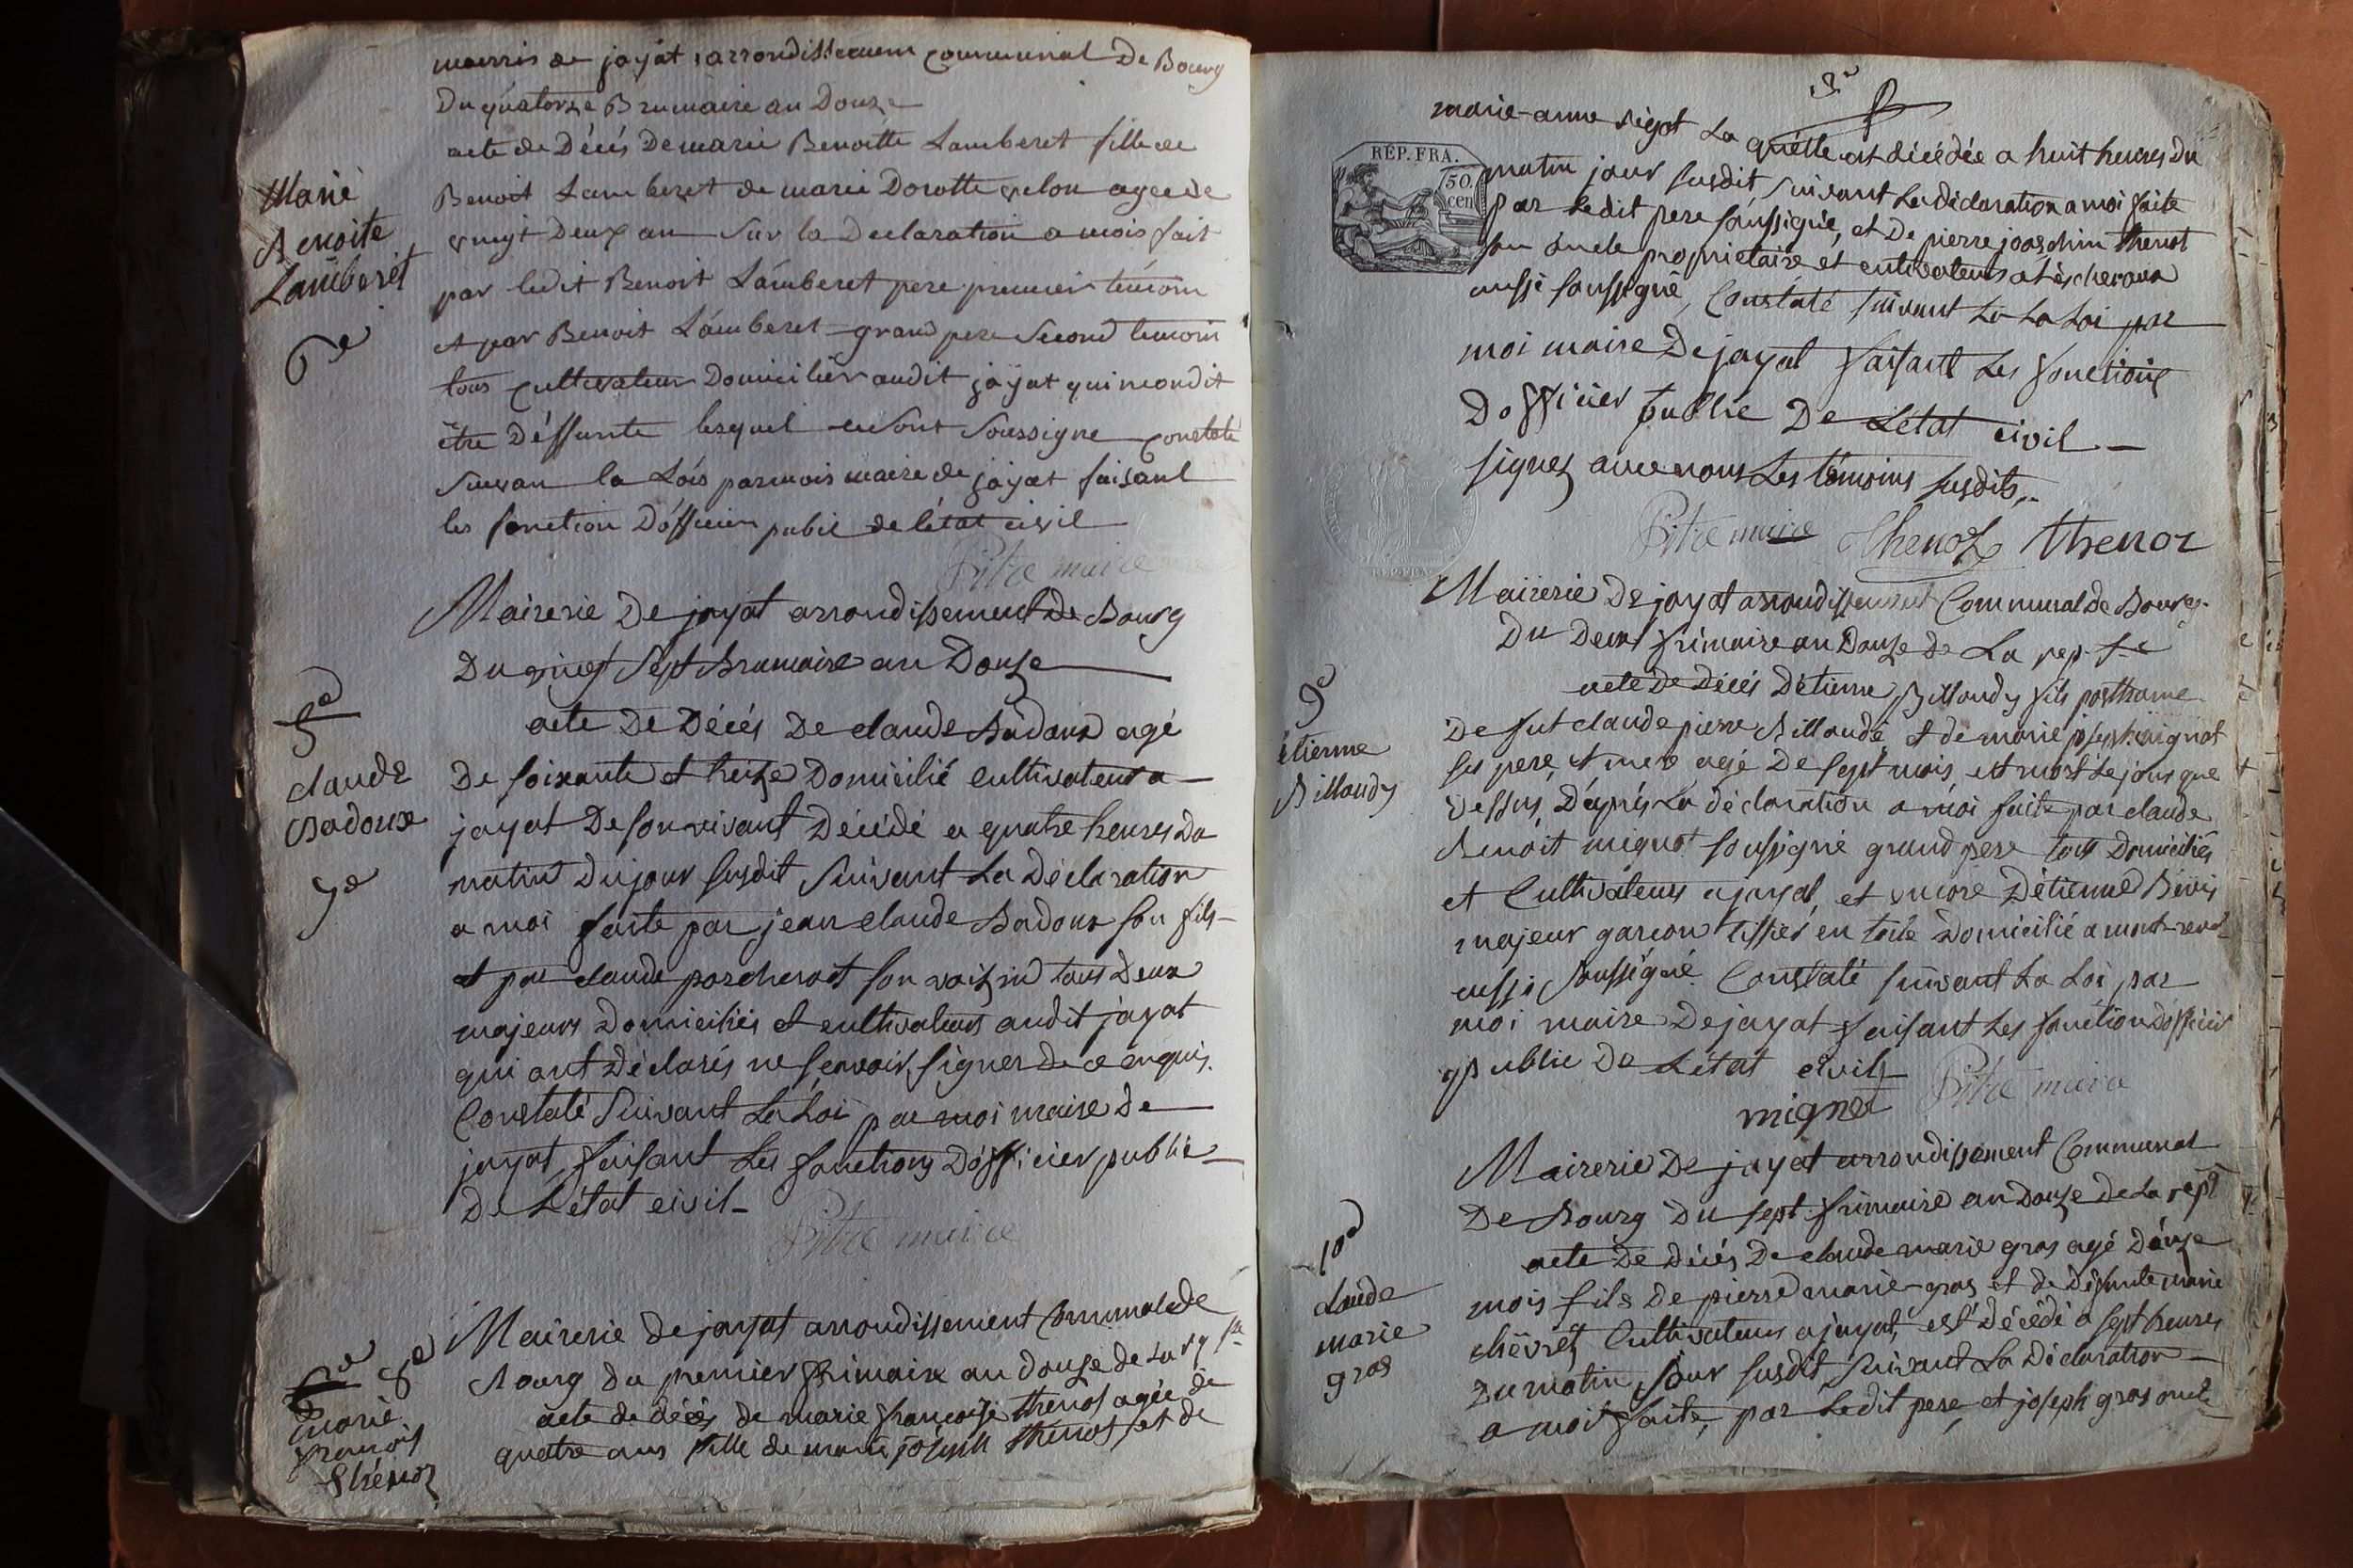 mairris de jayat arrondissement communal De Bourg
Du quatorze Brumaire an Douze
acte de Décés De marie Benoitte Lamberet fille de
Marie
Benoite
Lamberet
6e
Benoit Lamberet de marie Dorotte velon agee de
vingt Deux an Sur la Declaration a mois fait
par ledit Benoit Lamberet pere premier témoin
et par Benoit Lamberet grand pere Second temoin
tous cultivateur Domicilier audit jayat qui mondit
être Déffunte lesquel en sont Soussigne constaté
Suivan la Lois par mois maire de jayat faisant
les fonction Dofficier public de létat civil
Pitre maire
Mairerie De jayat arrondissement de Bourg
Du vingt Sept Brumaire an Douze
5e
claude
Badoux
7e
acte De Décés De claude Badoux agé
De soixante et treize Domicilié cultivateur a
jayat De son vivant Décédé a quatre heures Du
matin Du jour susdit Suivant La Déclaration
a moi faite par jean claude Badoux son fils
et par claude porcherot son voizin tous Deux
majeurs Domiciliés et cultivateurs audit jayat
qui ont Déclarés ne scavoir signer de ce enquis.
Constaté Suivant La Loi par moi maire De
jayat, faisant Les fonctions D'officier public
De L'état civil
Pitre maire
Mairerie de jayat arrondissement Communal de
Bourg du premier frimaire an douze de La rep f.se
8e
marie
françois
thénoz
acte de décés de marie françoise thenot agée de
quatre ans fille de marie joseph thenot, et de
3e
marie-anne sigot La quelle est décédée a huit heures du
REP. FRA.
50.
cen
matin jour susdit, suivant La déclaration a moi faite
par Ledit pere soussigné, et De pierre joaschim thenot
son oncle propriétaire et cultivateur a Lescheroux
aussi soussigné, Constaté suivant La La Loi par
moi maire De jayat faisant Les fonctions
Dofficier public De L'etat civil
signez avec nous Les témoins susdits.
Pitre maire Thenoz thenoz
Mairerie De jayat arrondissement Communal de Bourg.
Du Deux frimaire an Douze De La rep. f.se
9e
étienne
Billoudy
acte De Décés D'étienne Billoudy fils posthume
De fut claude pierre Billoudé, et de marie joseph mignot
ses pere, et mere agé De sept mois, est mort Le jour que
Dessus, D'aprés La déclaration a moi faite par claude
Benoit mignot soussigné grand pere tous Domiciliés
et Cultivateurs a jayat, et encore D'étienne Bévis
majeur garcon tissier en toile Domicilié a mont-revel
aussi Soussigné. Constaté suivant La Loi par
moi maire De jayat faisant Les fonction D'officier
public De L'état civil
mignot Pitre maire
Mairerie De jayat arrondissement Communal
De Bourg Du sept frimaire an Douze de La rep
10e
claude
marie
gros
acte De Décés De claude marie gros agé D'onze
mois fils De pierre marie-gros et de Défunte marie
chévret Cultivateurs a jayat, est Décédé a sept heures
Du matin, Jour susdit Suivant La Déclaration
a moi faite, par Ledit pere, et joseph gros oncle